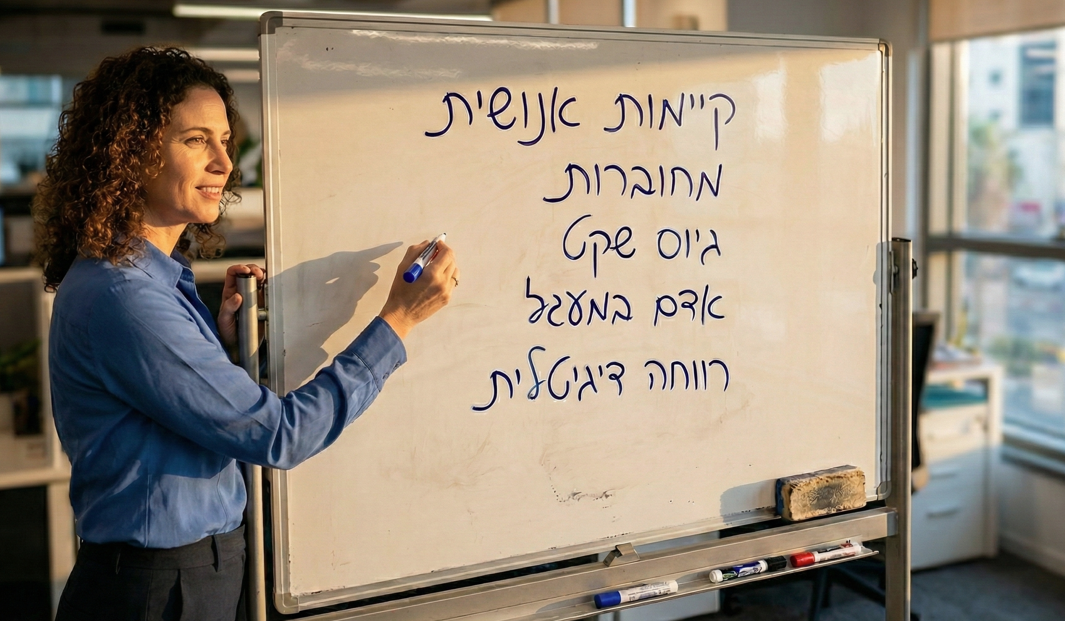 קיימות אנושית
מחוברות
גיוס שקט
אדם במעגל
רווחה דיגיטלית